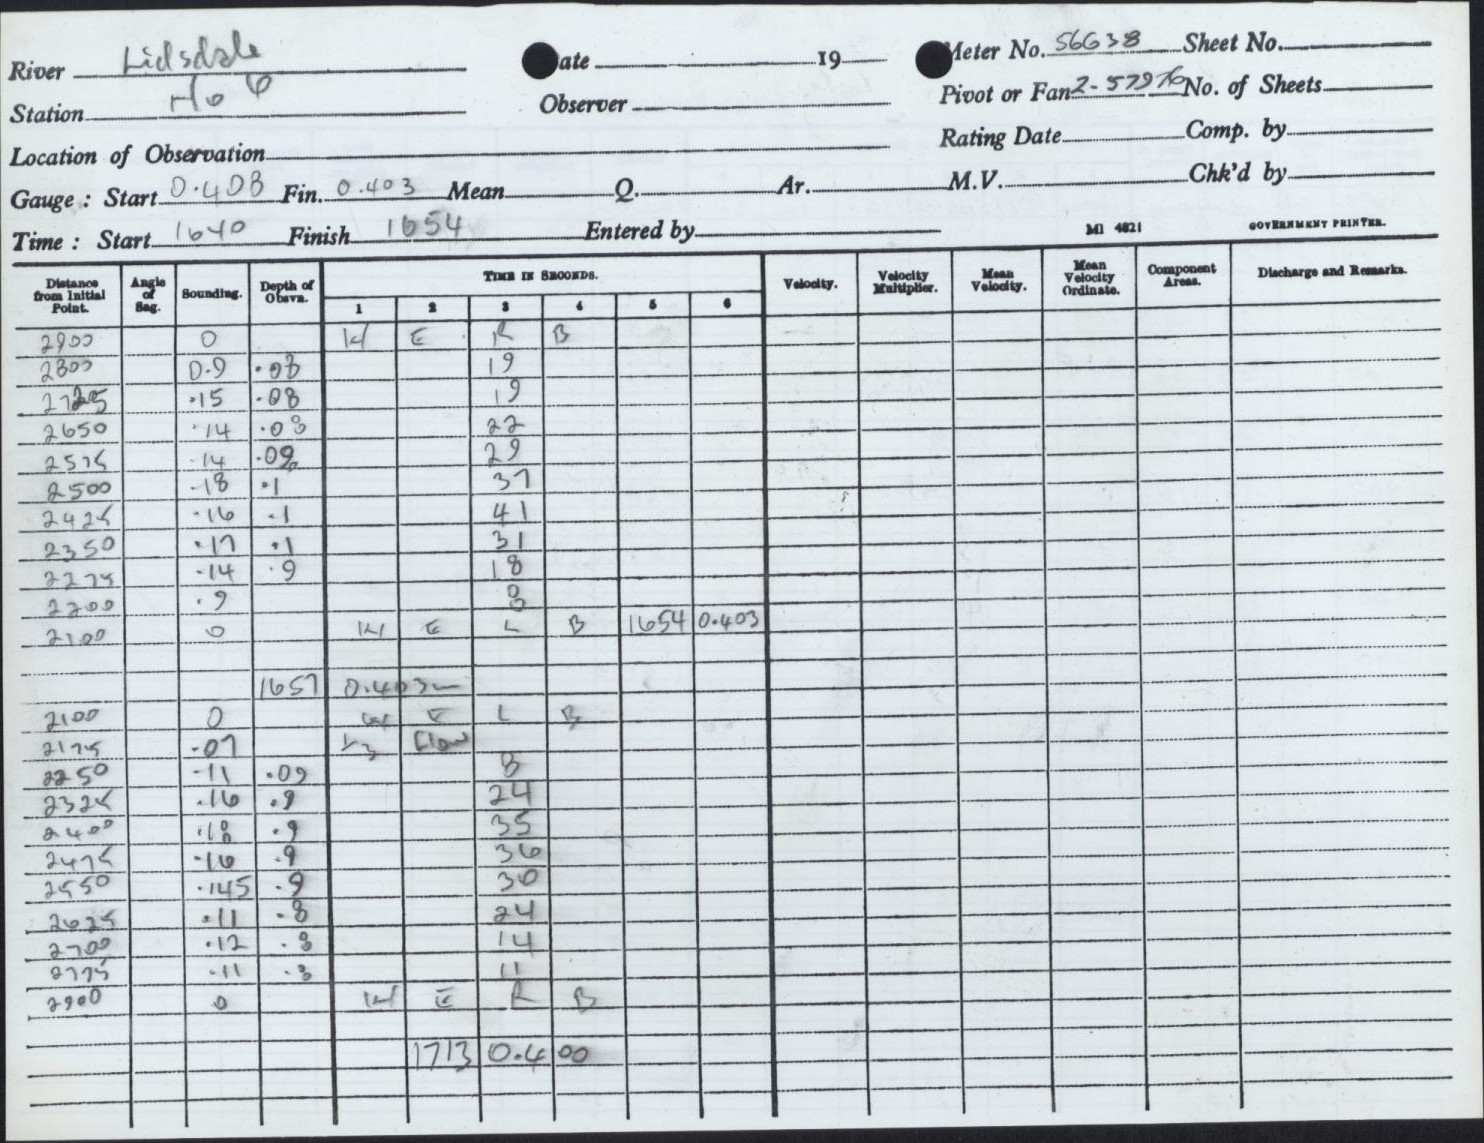 River Lidsdale Date 19 Meter No. 56G38 Sheet No.
Station No 6 Observer Pivot or Fan 2-57976 No. of Sheets
Location of Observation Rating Date Comp. by
Gauge : Start 0.408 Fin. 0.403 Mean Q. Ar. M.V. Chk'd by
Time : Start 1640 Finish 1654 Entered by MI 4821 GOVERNMENT PRINTER.
Distance from Initial Point. Angle of Sag. Sounding. Depth of Obsvn. TIME IN SECONDS. Velocity. Velocity Multiplier. Mean Velocity. Mean Velocity Ordinate. Component Areas. Discharge and Remarks.
1 2 3 4 5 6
2900 0 W E R B
2800 0.9 .08 19
2725 .15 .08 19
2650 .14 .08 22
2575 .14 .09 29
2500 .18 .1 37
2425 .16 .1 41
2350 .17 .1 31
2275 .14 .9 18
2200 .9 8
2100 0 W E L B 1654 0.403
1657 0.403m
2100 0 W E L B
2175 .07 Flow
2250 .11 .09 8
2325 .16 .9 24
2400 .18 .9 35
2475 .16 .9 36
2550 .145 .9 30
2625 .11 .8 24
2700 .12 .8 14
2775 .11 .8 11
2900 0 W E R B
1713 0.400